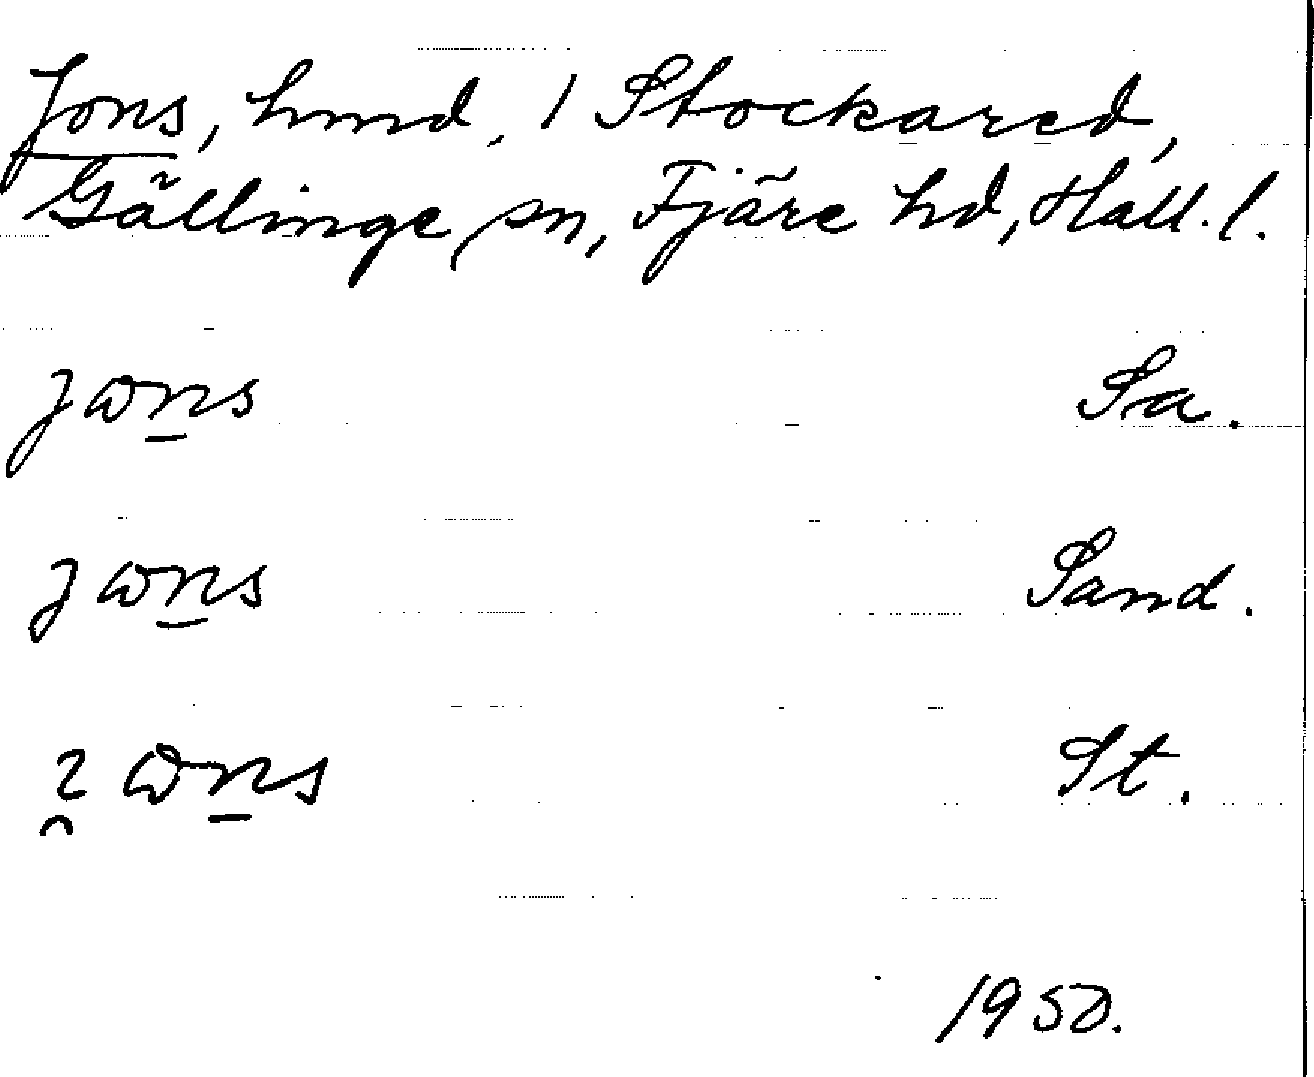 Jons, hmd, 1 Stockared,
Gällinge sn, Fjäre hd, Hall. l.
jɷns Sa.
jɷns Sand.
ɷns St.
1950.